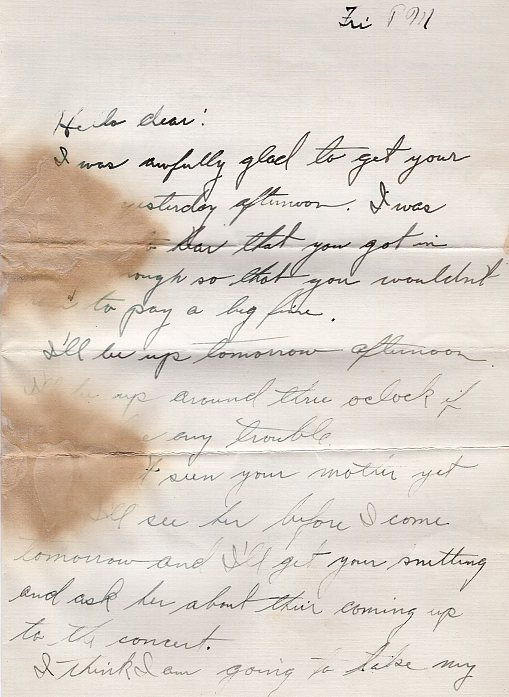 Fri PM
Hello dear!
I was awfully glad to get your
yesterday afternoon. I was
to hear that you got in
nough so that you wouldn't
to pay a big fine.
I'll be up tomorrow afternoon.
be up around three oclock if
any trouble.
seen your mother yet
I'll see her before I come
tomorrow and I'll get your
and ask her about their coming up
to the concert.
I think I am going to take my